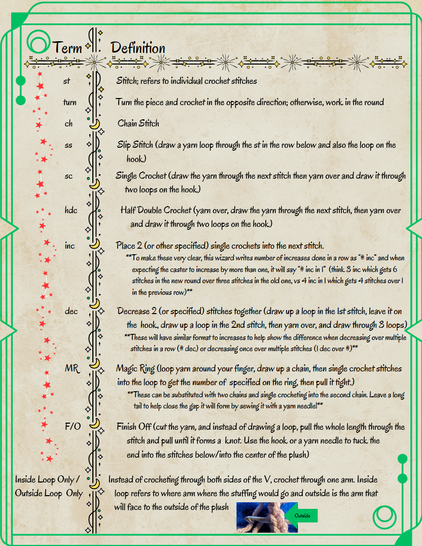 Term Definition
st Stitch; refers to individual crochet stitches
turn Turn the piece and crochet in the opposite direction; otherwise, work in the round
ch Chain Stitch
ss Slip Stitch (draw a yarn loop through the st in the row below and also the loop on the
hook.)
sc Single Crochet (draw the yarn through the next stitch then yarn over and draw it through
two loops on the hook.)
hdc Half Double Crochet (yarn over, draw the yarn through the next stitch, then yarn over
and draw it through two loops on the hook.)
inc Place 2 (or other specified) single crochets into the next stitch.
**To make these very clear, this wizard writes number of increases done in a row as "# inc" and when
expecting the caster to increase by more than one, it will say "# inc in 1" (think..3 inc which gets 6
stitches in the new round over three stitches in the old one, vs 4 inc in 1 which gets 4 stitches over 1
in the previous row)**
dec Decrease 2 (or specified) stitches together (draw up a loop in the 1st stitch, leave it on
the hook, draw up a loop in the 2nd stitch, then yarn over, and draw through 3 loops)
**These will have similar format to increases to help show the difference when decreasing over multiple
stitches in a row (# dec) or decreasing once over multiple stitches (1 dec over #)**
MR Magic Ring (loop yarn around your finger, draw up a chain, then single crochet stitches
into the loop to get the number of specified on the ring, then pull it tight.)
**These can be substituted with two chains and single crocheting into the second chain. Leave a long
tail to help close the gap it will form by sewing it with a yarn needle!**
F/O Finish Off (cut the yarn, and instead of drawing a loop, pull the whole length through the
stitch and pull until it forms a knot. Use the hook or a yarn needle to tuck the
end into the stitches below/into the center of the plush)
Inside Loop Only / Instead of crocheting through both sides of the V, crochet through one arm. Inside
Outside Loop Only loop refers to where arm where the stuffing would go and outside is the arm that
will face to the outside of the plush
Outside